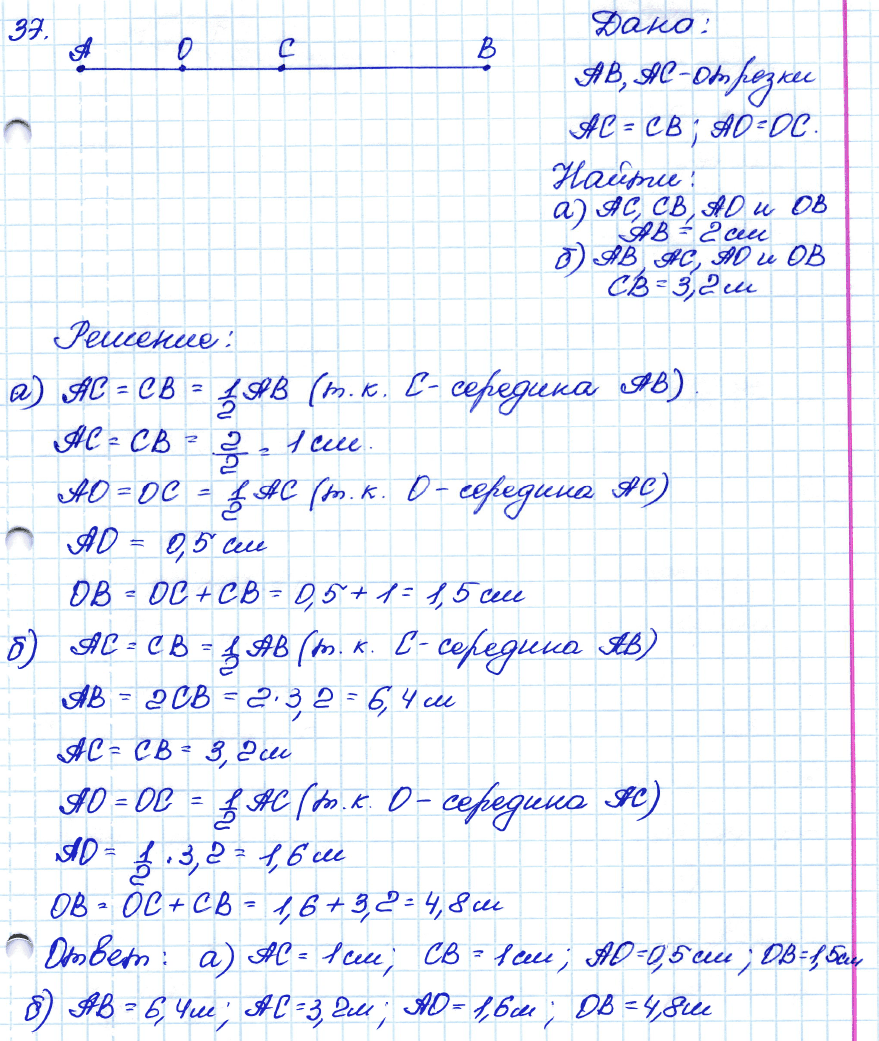 37.
A O C B
Дано:
AB, AC - отрезки
AC = CB; AO = OC.
Найти:
а) AC, CB, AO и OB
AB = 2 см
б) AB, AC, AO и OB
CB = 3,2 м
Решение:
а) AC = CB = 1/2 AB (т.к. C - середина AB).
AC = CB = 2/2 = 1 см.
AO = OC = 1/2 AC (т.к. O - середина AC)
AO = 0,5 см
OB = OC + CB = 0,5 + 1 = 1,5 см
б) AC = CB = 1/2 AB (т.к. C - середина AB)
AB = 2CB = 2·3,2 = 6,4 м
AC = CB = 3,2 м
AO = OC = 1/2 AC (т.к. O - середина AC)
AO = 1/2 · 3,2 = 1,6 м
OB = OC + CB = 1,6 + 3,2 = 4,8 м
Ответ: а) AC = 1 см; CB = 1 см; AO = 0,5 см; OB = 1,5 см
б) AB = 6,4 м; AC = 3,2 м; AO = 1,6 м; OB = 4,8 м